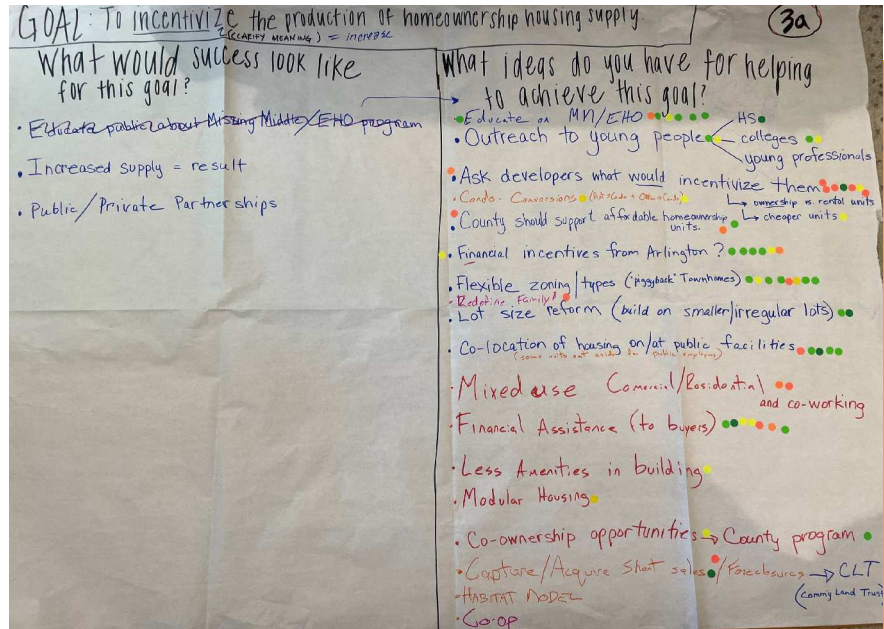 GOAL: To incentivize the production of homeownership housing supply.
(CLARIFY MEANING) = increase
3a
What would success look like
for this goal?
• Educate public about Missing Middle/EHO program
• Increased supply = result
• Public/Private Partnerships
What ideas do you have for helping
to achieve this goal?
• Educate on MM/EHO
• Outreach to young people
HS
colleges
young professionals
• Ask developers what would incentivize them
↳ ownership vs. rental units
↳ cheaper units
• Condo Conversions
• County should support affordable homeownership
units.
• Financial incentives from Arlington?
• Flexible zoning/types ("piggyback" Townhomes)
- Redefine "Family"
• Lot size reform (build on smaller/irregular lots)
• Co-location of housing on/at public facilities
(some units set aside for public employees)
• Mixed use Comercial/Residential
and co-working
• Financial Assistance (to buyers)
• Less Amenities in building
• Modular Housing
• Co-ownership opportunities → County program
• Capture/Acquire Short sales/Foreclosures → CLT
(Comm'y Land Trust)
- HABITAT MODEL
• Co-op